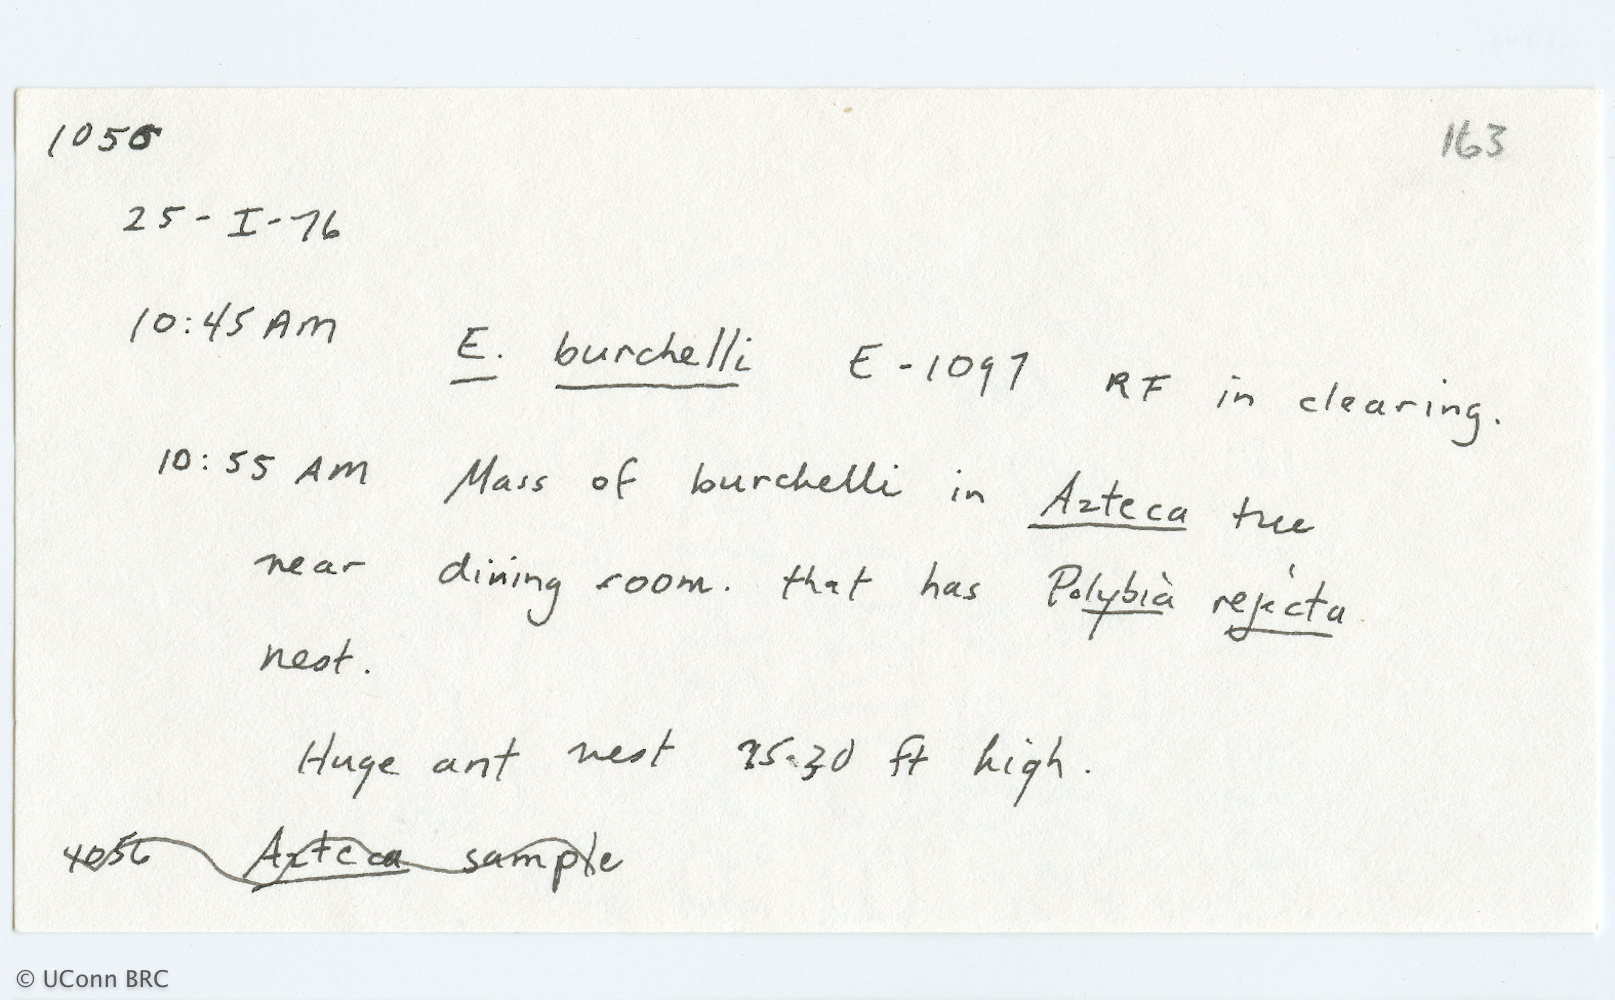 163
25-I-76
10:45 AM E. burchelli E-1097 RF in clearing.
10:55 AM Mass of burchelli in Azteca tree
near dining room. that has Polybia rejecta
nest.
Huge ant nest 25-30 ft high.
Azteca sample
© UConn BRC